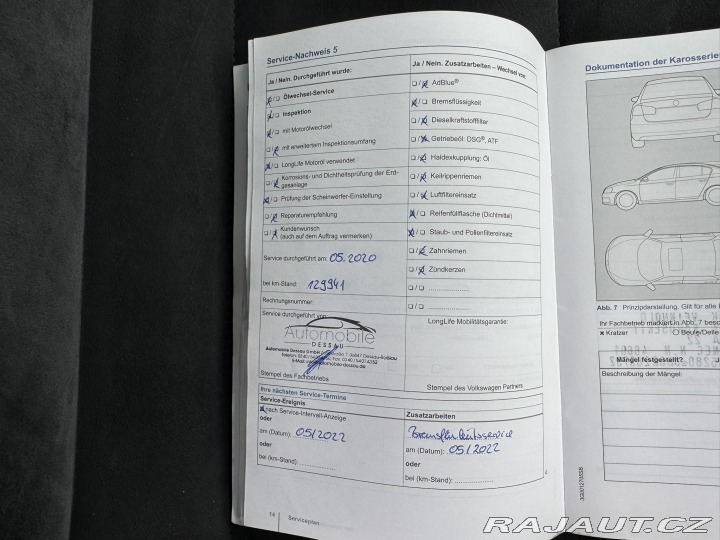 Service-Nachweis 5
Ja / Nein. Durchgeführt wurde:
Ölwechsel-Service
Inspektion
mit Motorölwechsel
mit erweitertem Inspektionsumfang
LongLife Motoröl verwendet
Korrosions- und Dichtheitsprüfung der Erd-
gasanlage
Prüfung der Scheinwerfer-Einstellung
Reparaturempfehlung
Kundenwunsch
(auch auf dem Auftrag vermerken)
Service durchgeführt am: 05.2020
bei km-Stand: 129941
Rechnungsnummer:
Service durchgeführt von:
Automobile
DESSAU
Automobile Dessau GmbH
Stempel des Fachbetriebs
Ja / Nein. Zusatzarbeiten – Wechsel von:
AdBlue®
Bremsflüssigkeit
Dieselkraftstofffilter
Getriebeöl: DSG®, ATF
Haldexkupplung: Öl
Keilrippenriemen
Luftfiltereinsatz
Reifenfüllflasche (Dichtmittel)
Staub- und Pollenfiltereinsatz
Zahnriemen
Zündkerzen
LongLife Mobilitätsgarantie:
Stempel des Volkswagen Partners
Ihre nächsten Service-Termine
Service-Ereignis
nach Service-Intervall-Anzeige
oder
am (Datum): 05/2022
oder
bei (km-Stand):
Zusatzarbeiten
am (Datum): 05/2022
oder
bei (km-Stand):
14 Serviceplan
Dokumentation der Karosserie
Abb. 7 Prinzipdarstellung. Gilt für alle
Ihr Fachbetrieb markiert in Abb. 7 besc
x Kratzer O Beule/Delle
Mängel festgestellt? J
Beschreibung der Mängel:
RAJAUT.CZ